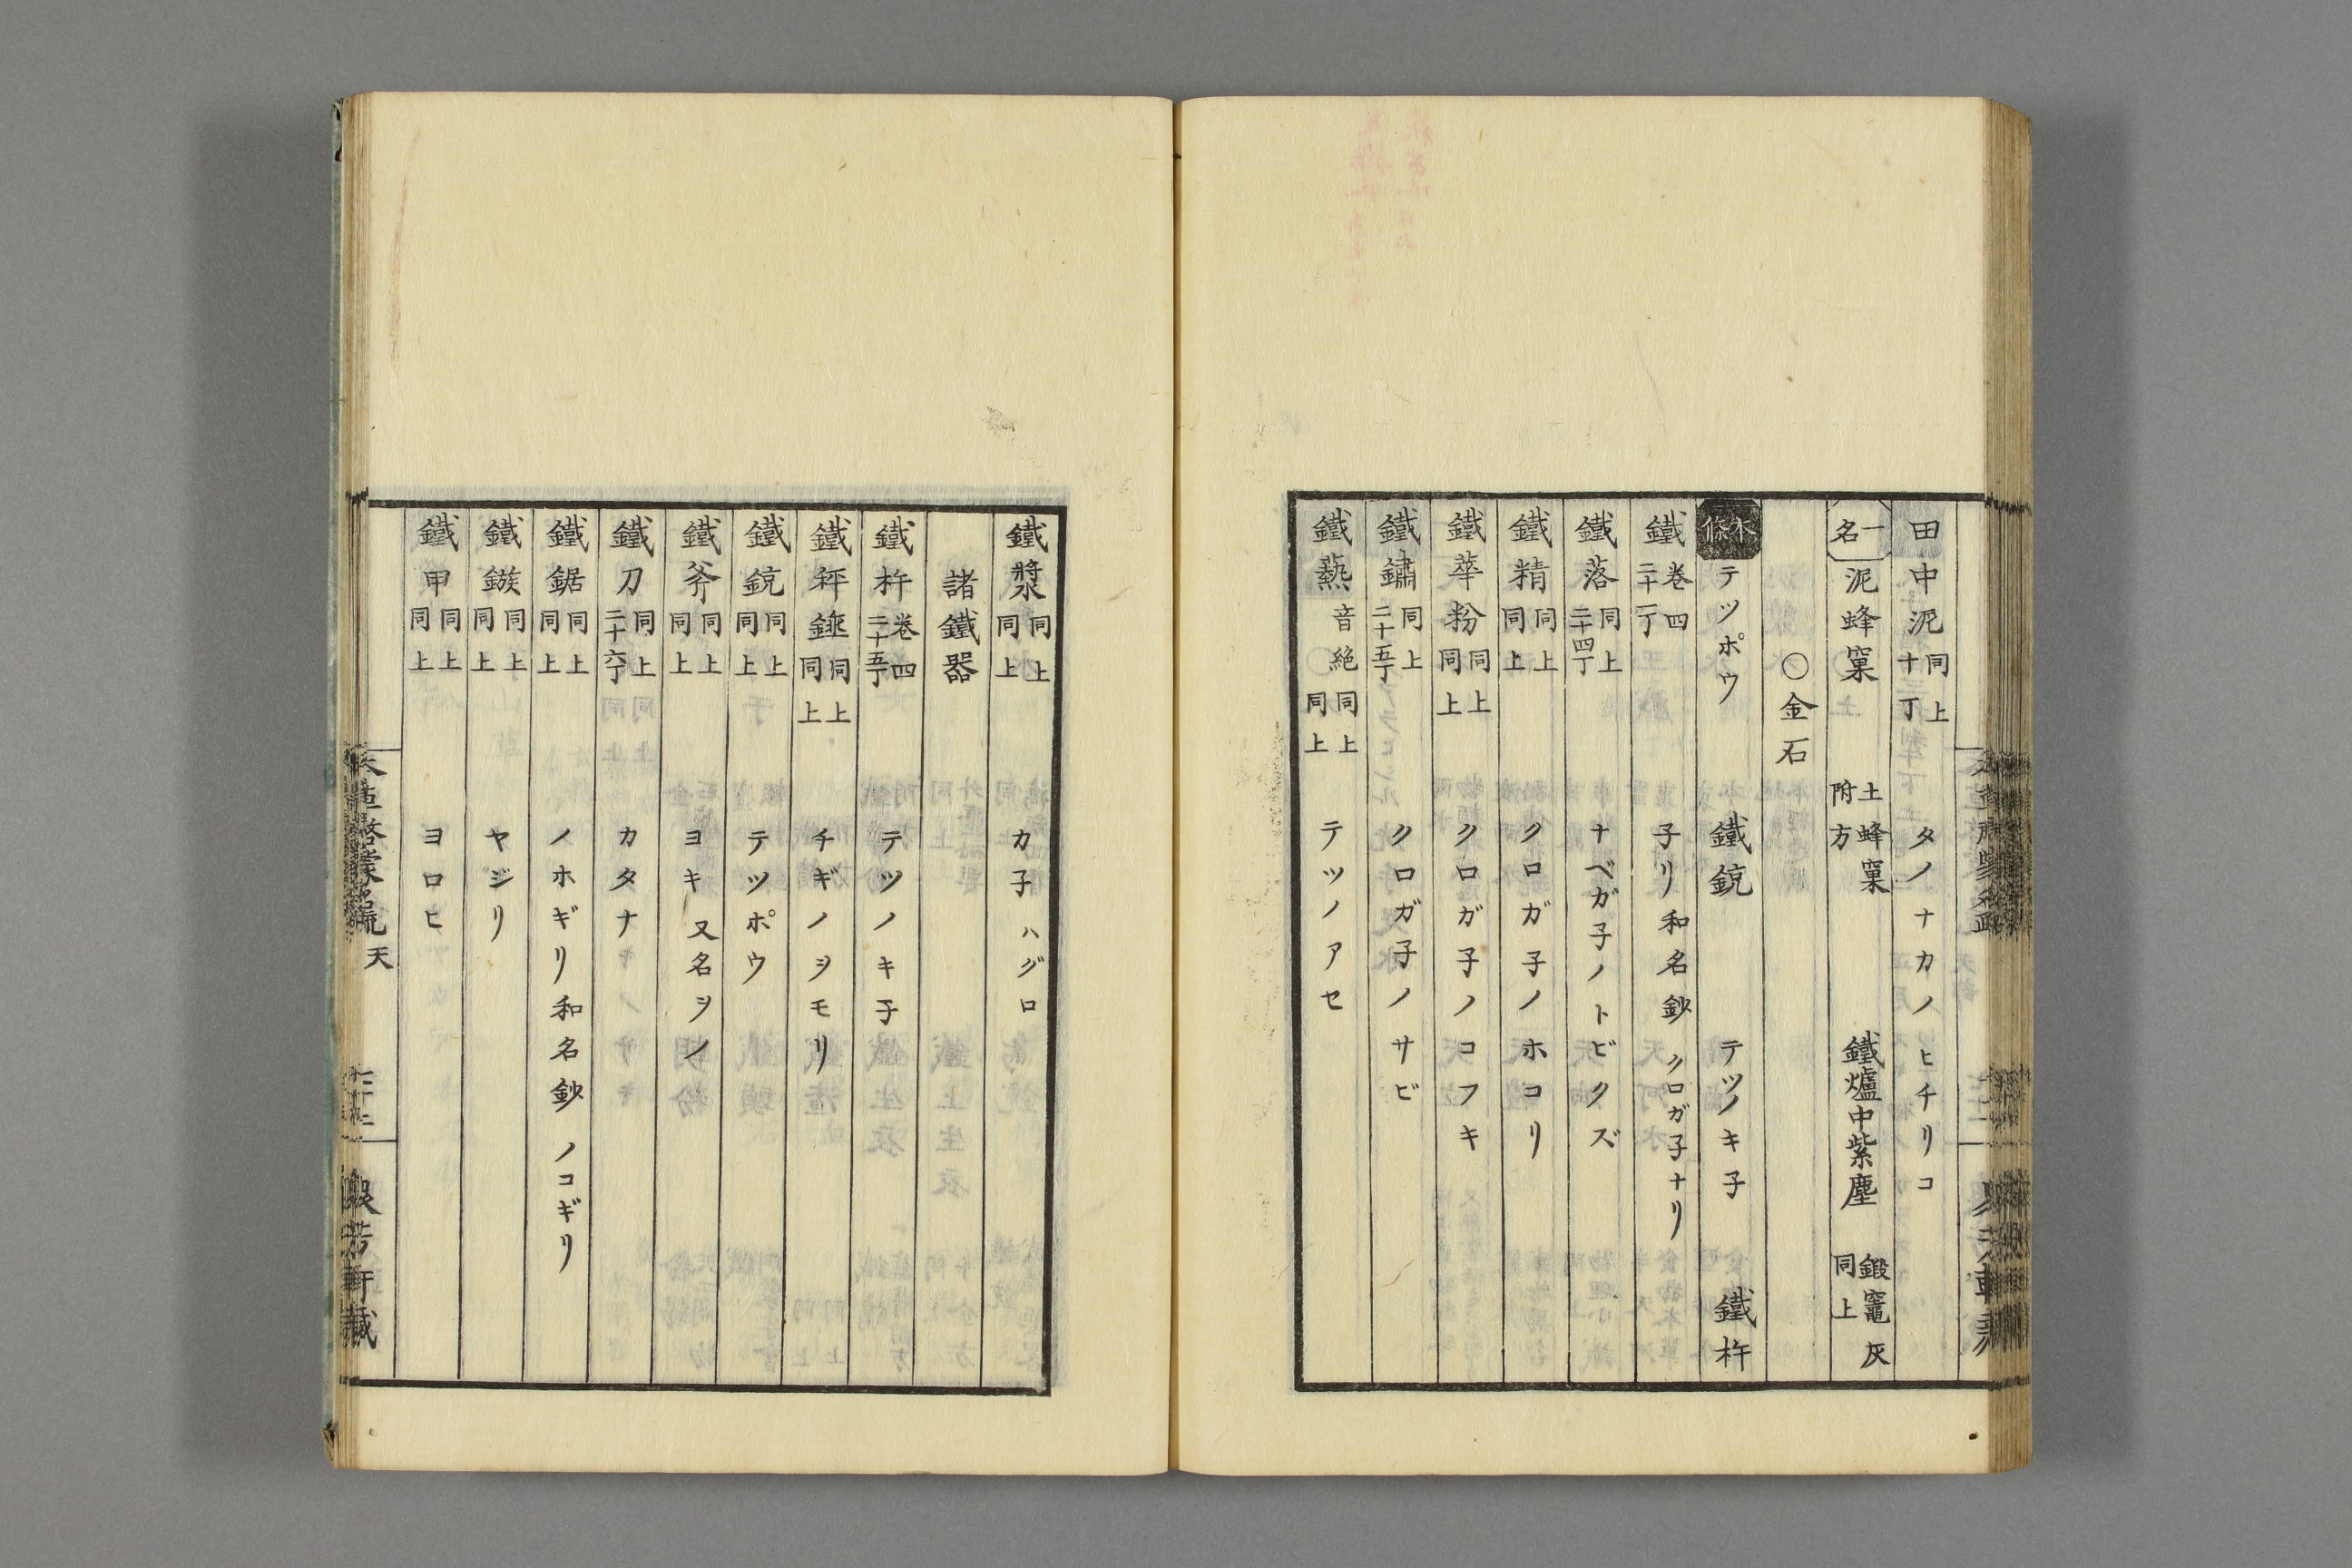 田中泥 同上十丁 タノナカノヒチリコ
一名 泥蜂窠 土蜂窠附方 鐵爐中紫塵 鍛竈灰同上
〇金石
本條 テツポウ 鐵銃 テツノキ子 鐵杵
鐵 卷四二十一丁 子リ 和名鈔 クロガ子ナリ
鐵落 同上二十四丁 ナベガ子ノトビクズ
鐵精 同上同上 クロガ子ノホコリ
鐵華粉 同上同上 クロガ子ノコフキ
鐵鏽 同上二十五丁 クロガ子ノサビ
鐵爇 音絶 同上同上 テツノアセ
鐵漿 同上同上 カ子 ハグロ
諸鐵器
鐵杵 卷四二十五丁 テツノキ子
鐵秤錘 同上同上 チギノヲモリ
鐵銃 同上同上 テツポウ
鐵斧 同上同上 ヨキ 又名ヲノ
鐵刀 同上二十六丁 カタナ
鐵鋸 同上同上 ノホギリ 和名鈔 ノコギリ
鐵鏃 同上同上 ヤジリ
鐵甲 同上同上 ヨロヒ
啓蒙名疏 天
芳軒藏